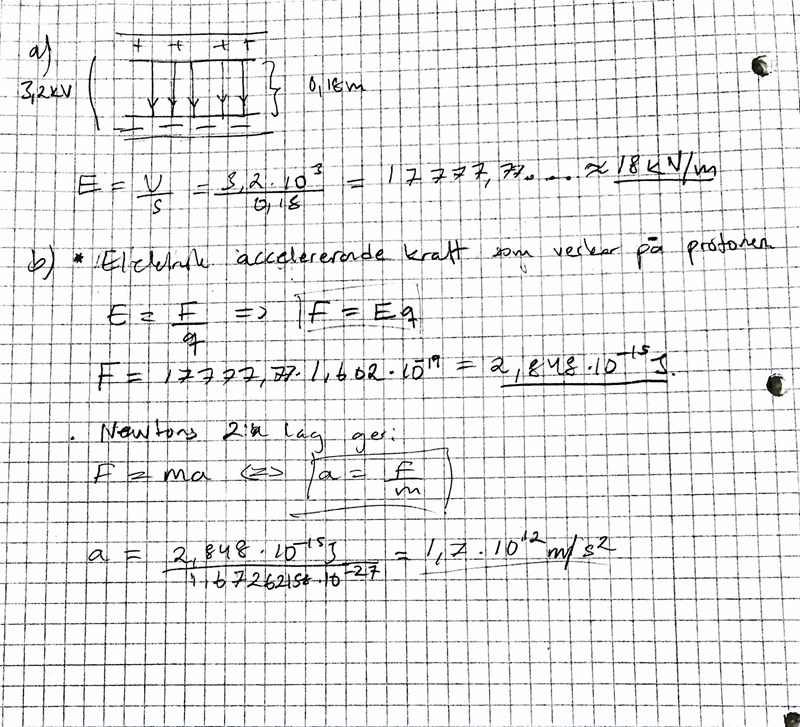 a)
+ + + +
3,2kV 0,18m
E = U/s = 3,2 · 10³/0,18 = 17777,77.... ≈ 18 kV/m
b) * Elektrisk accelererande kraft som verkar på protonen
E = F/q => F = Eq
F = 17777,77 · 1,602 · 10⁻¹⁹ = 2,848 · 10⁻¹⁵ J.
· Newtons 2:a lag ger:
F = ma <=> a = F/m
a = 2,848 · 10⁻¹⁵ J/1,67262158 · 10⁻²⁷ = 1,7 · 10¹² m/s²